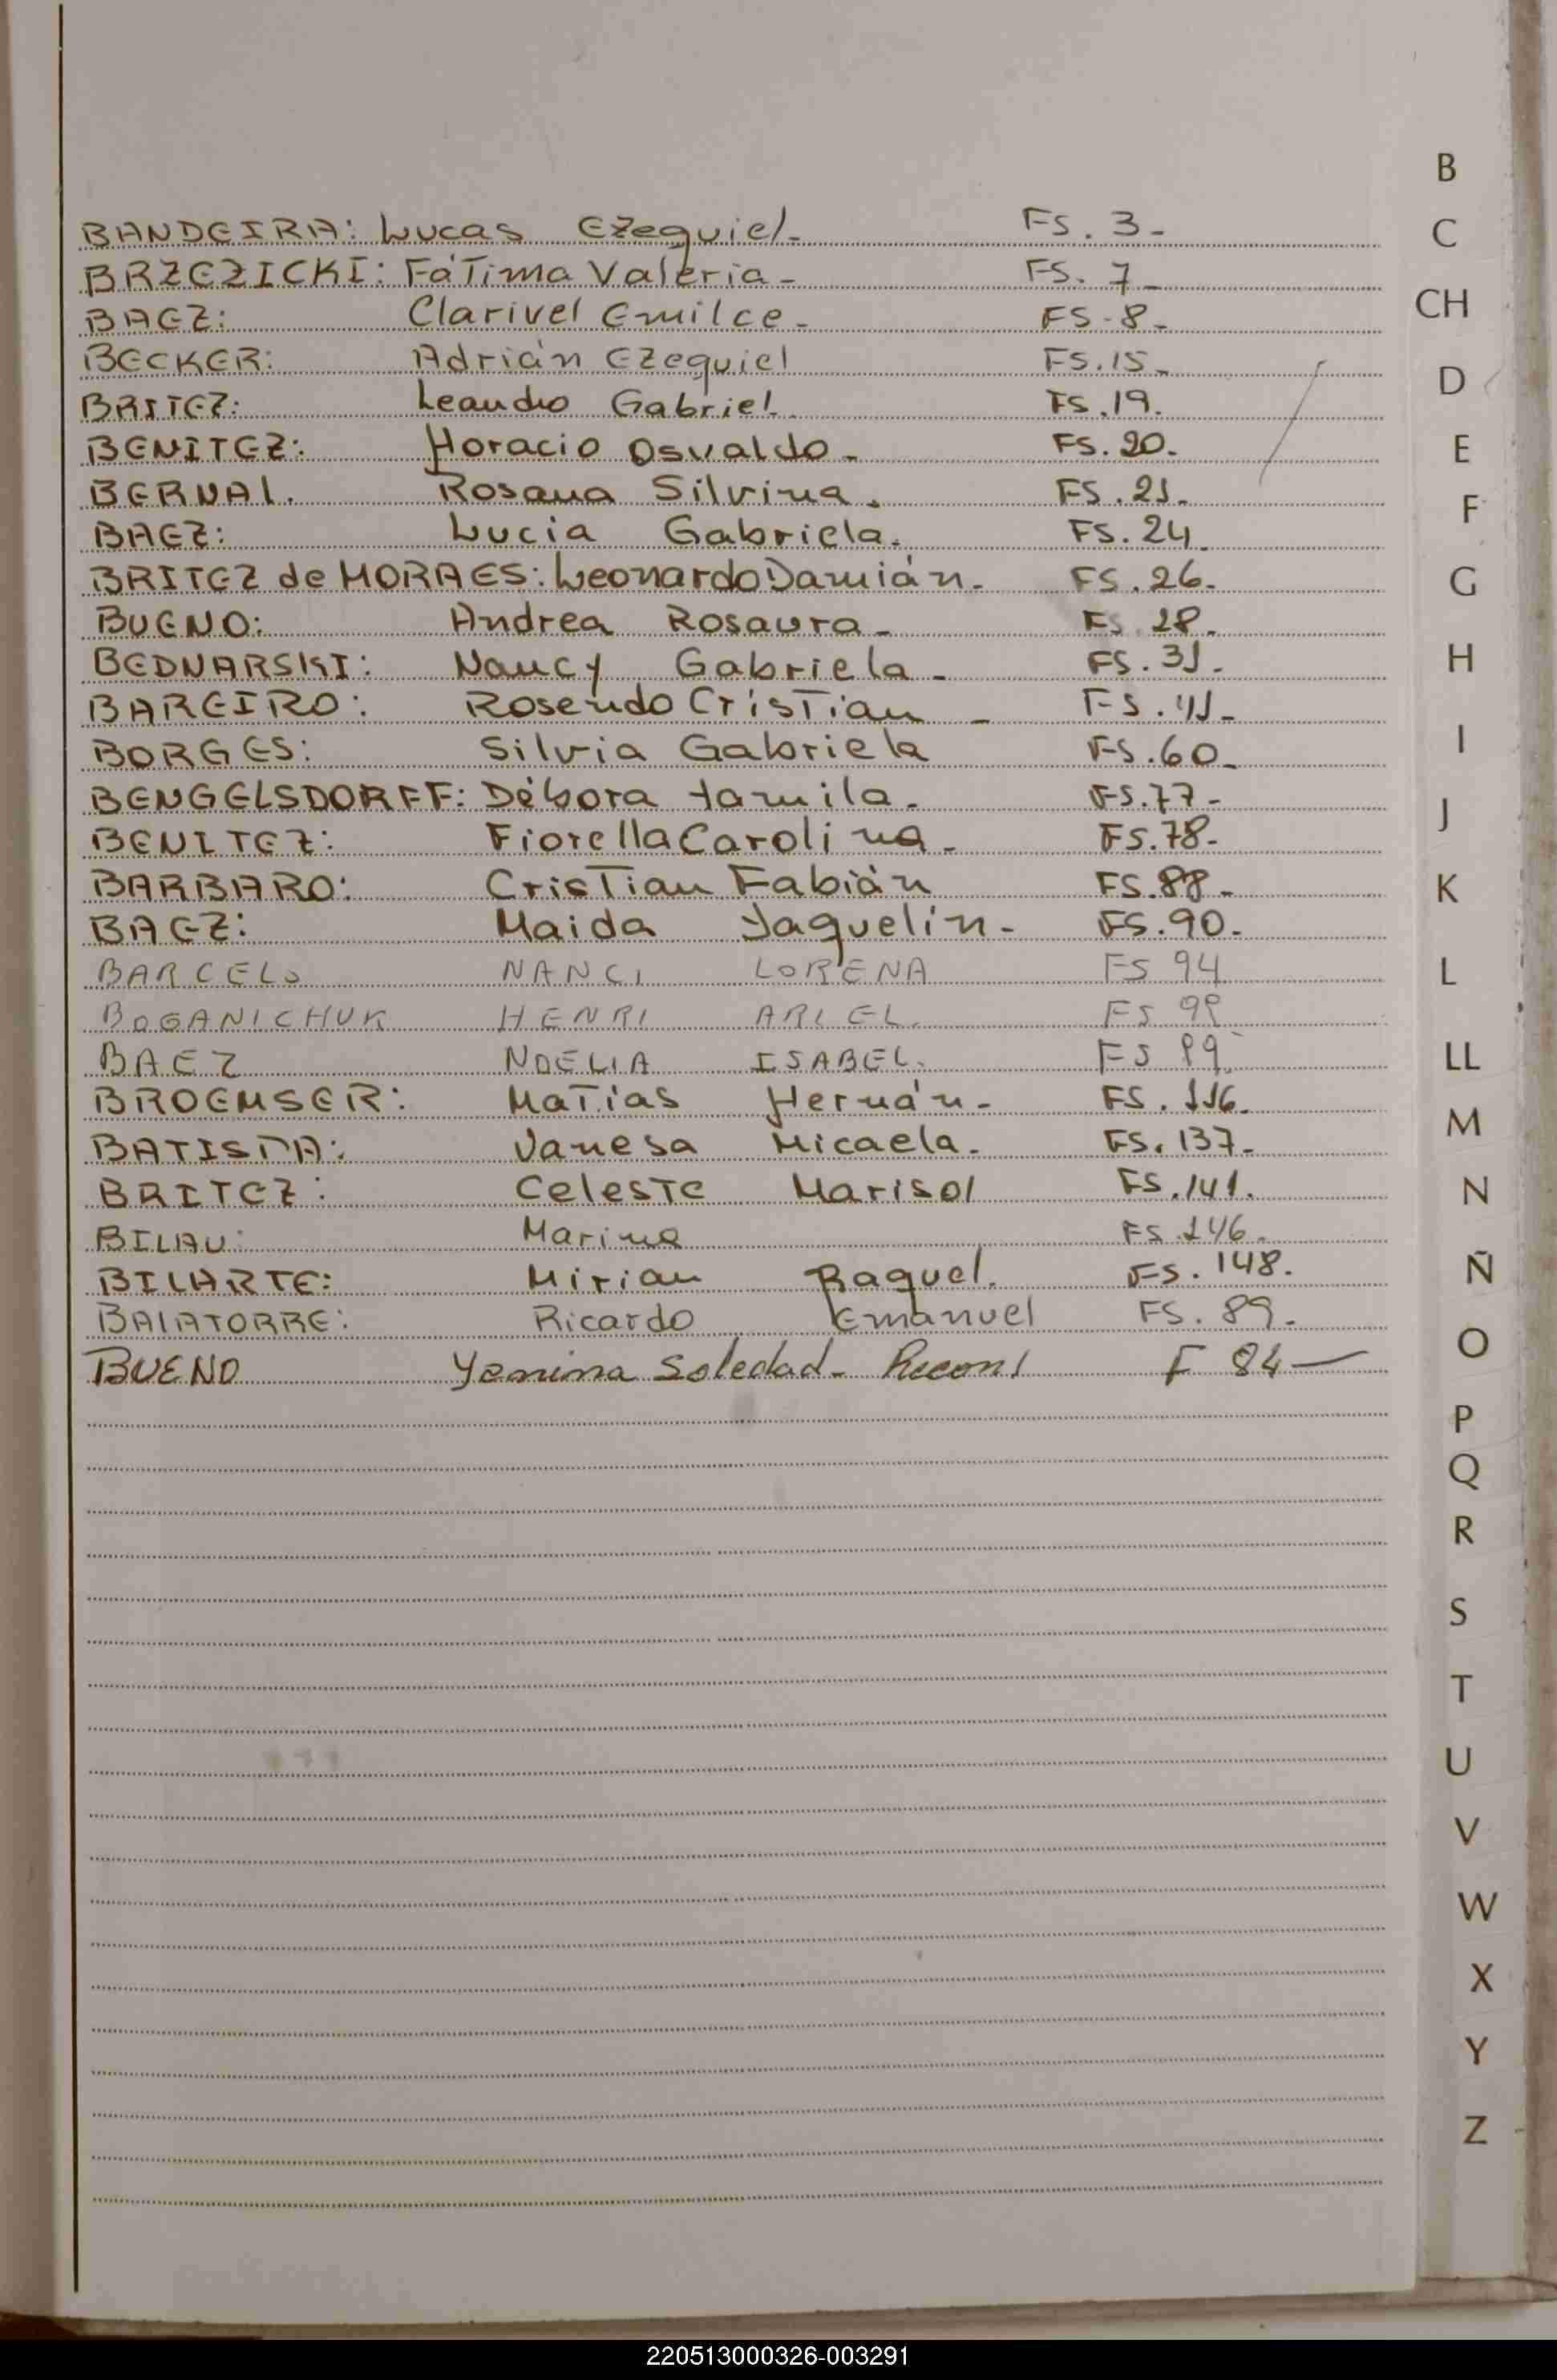 BANDEIRA: Lucas Ezequiel- FS. 3-
BRZEZICKI: FáTima Valeria- FS. 7-
BAEZ: Clarivel Emilce- FS-8-
BECKER: Adrián Ezequiel FS.15-
BRITEZ: Leandro Gabriel. FS.19.
BENITEZ: Horacio Osvaldo- FS.20.
BERNAL. Rosana Silvina. FS.21-
BAEZ: Lucia Gabriela. FS.24.
BRITEZ de MORAES: Leonardo Damián- FS.26-
BUENO: Andrea Rosaura- FS 28-
BEDNARSKI: Nancy Gabriela- FS.31-
BAREIRO: Rosendo CrisTian - FS.41-
BORGES: Silvia Gabriela FS.60-
BENGELSDORFF: Débora Yamila. FS.77-
BENITEZ: Fiorella Carolina- FS.78-
BARBARO: CrisTian Fabián FS.88-
BAEZ: Maida Yaquelín- FS.90-
BARCELO NANCI LORENA FS 94
BOGANICHUK HENRI ARIEL. FS
BAEZ NOELIA ISABEL. FS
BROEMSER: MaTías Hernán- FS. 116.
BATISTA: Vanesa Micaela. FS. 137-
BRITEZ: CelesTe Marisol FS.141.
BILAU: Marina FS.146.
BILHARTE: Mirian Raquel. FS. 148.
BALATORRE: Ricardo Emanuel FS. 89.
BUENO Yanina Soledad- F 84—
B
C
CH
D
E
F
G
H
I
J
K
L
LL
M
N
Ñ
O
P
Q
R
S
T
U
V
W
X
Y
Z
220513000326-003291